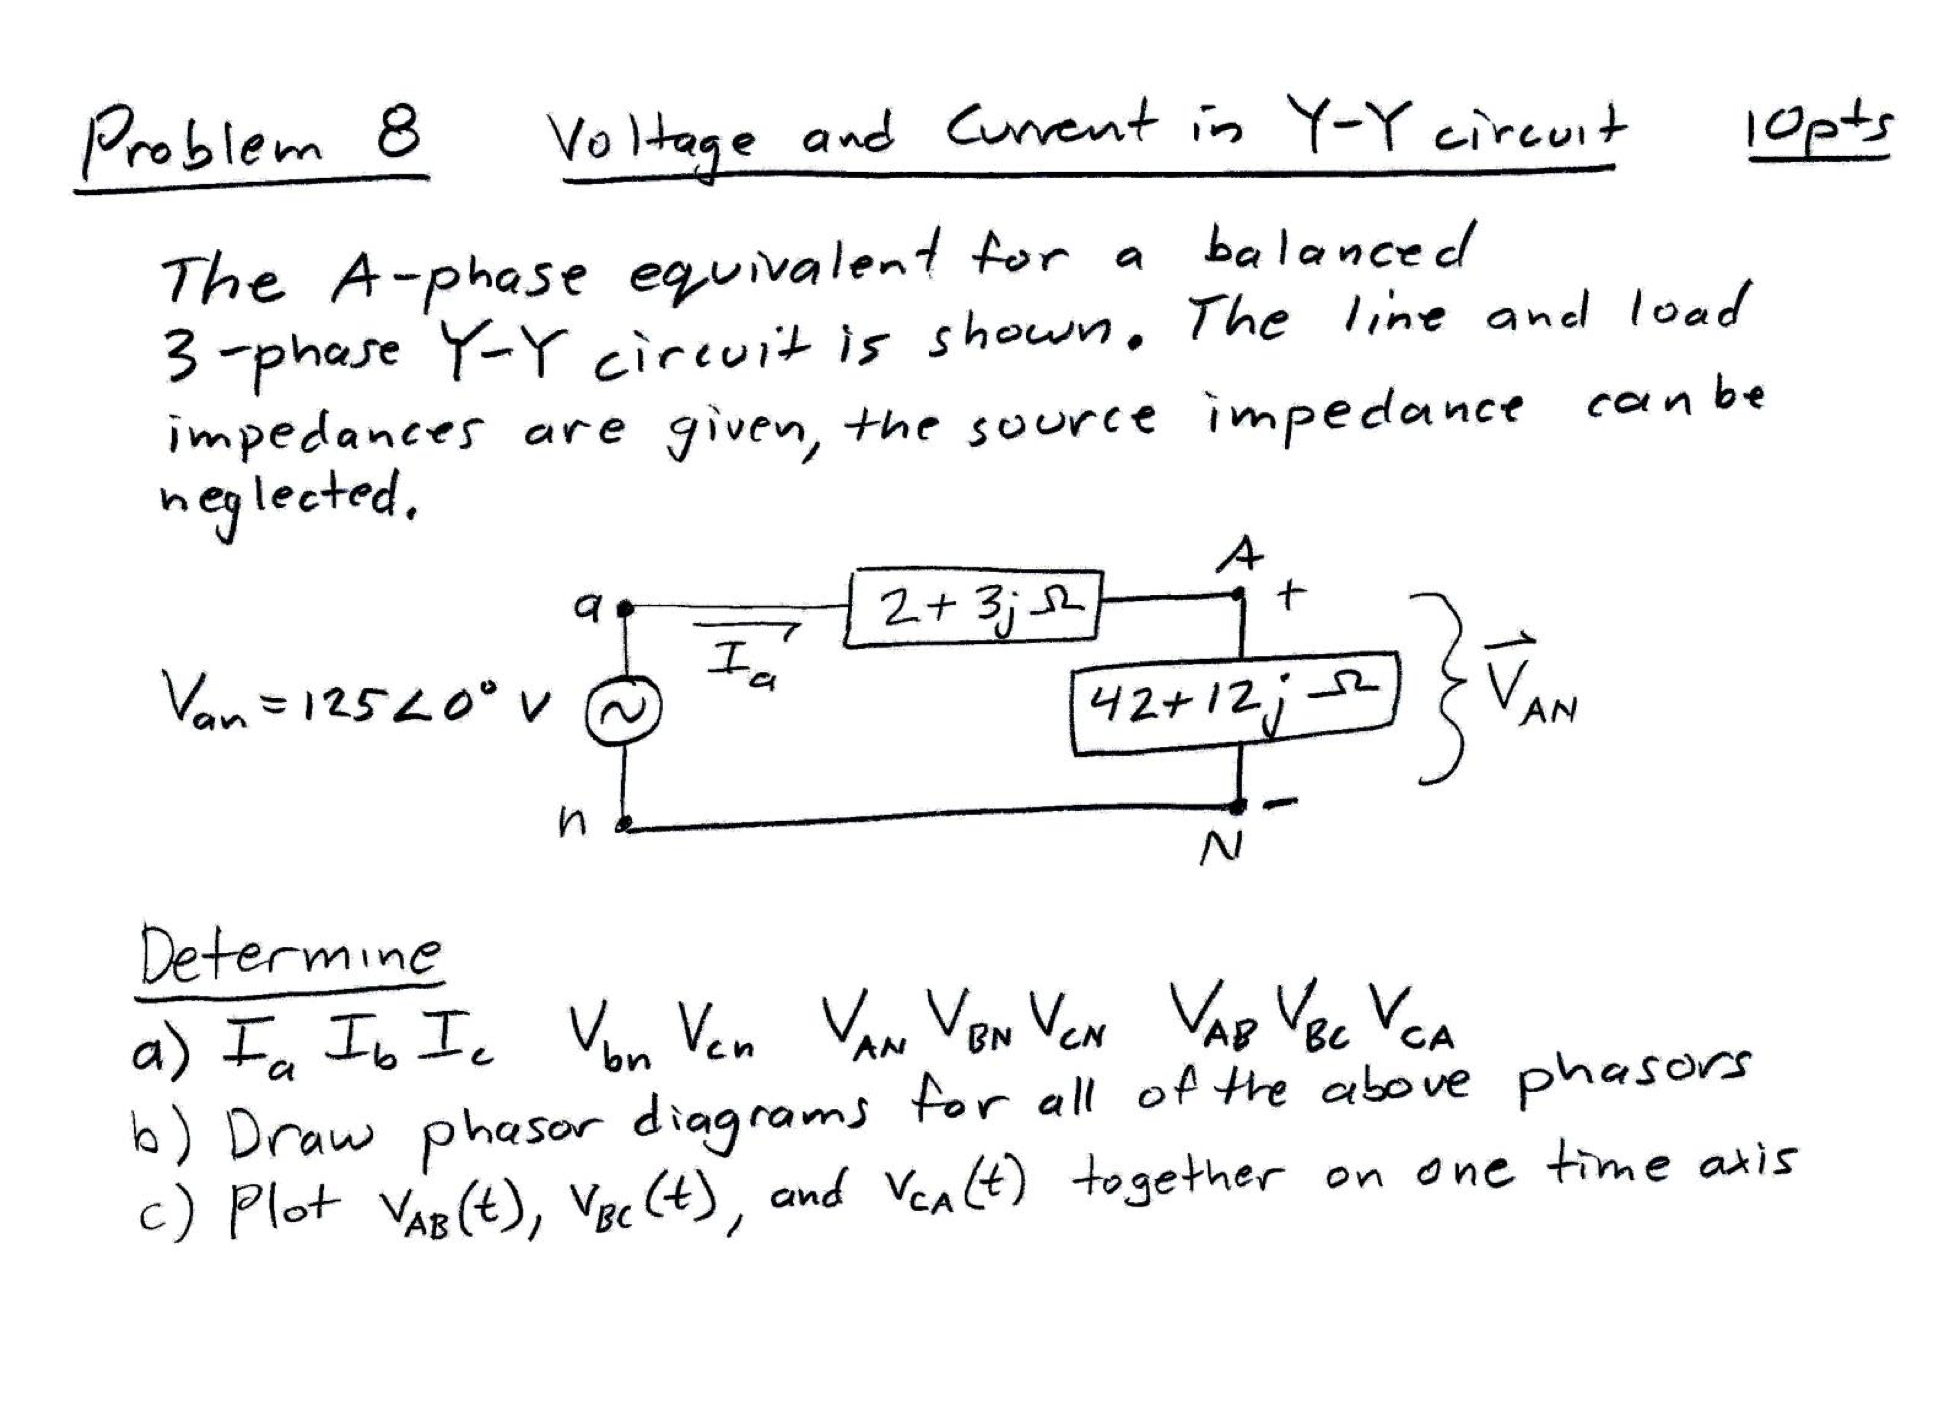 Problem 8 Voltage and Current in Y-Y circuit 10pts
The A-phase equivalent for a balanced
3-phase Y-Y circuit is shown. The line and load
impedances are given, the source impedance can be
neglected.
A
a 2+3jΩ +
Ia
Van = 125∠0° V 42+12jΩ V⃗AN
n -
N
Determine
a) Ia Ib Ic Vbn Vcn VAN VBN VCN VAB VBC VCA
b) Draw phasor diagrams for all of the above phasors
c) Plot VAB(t), VBC(t), and VCA(t) together on one time axis